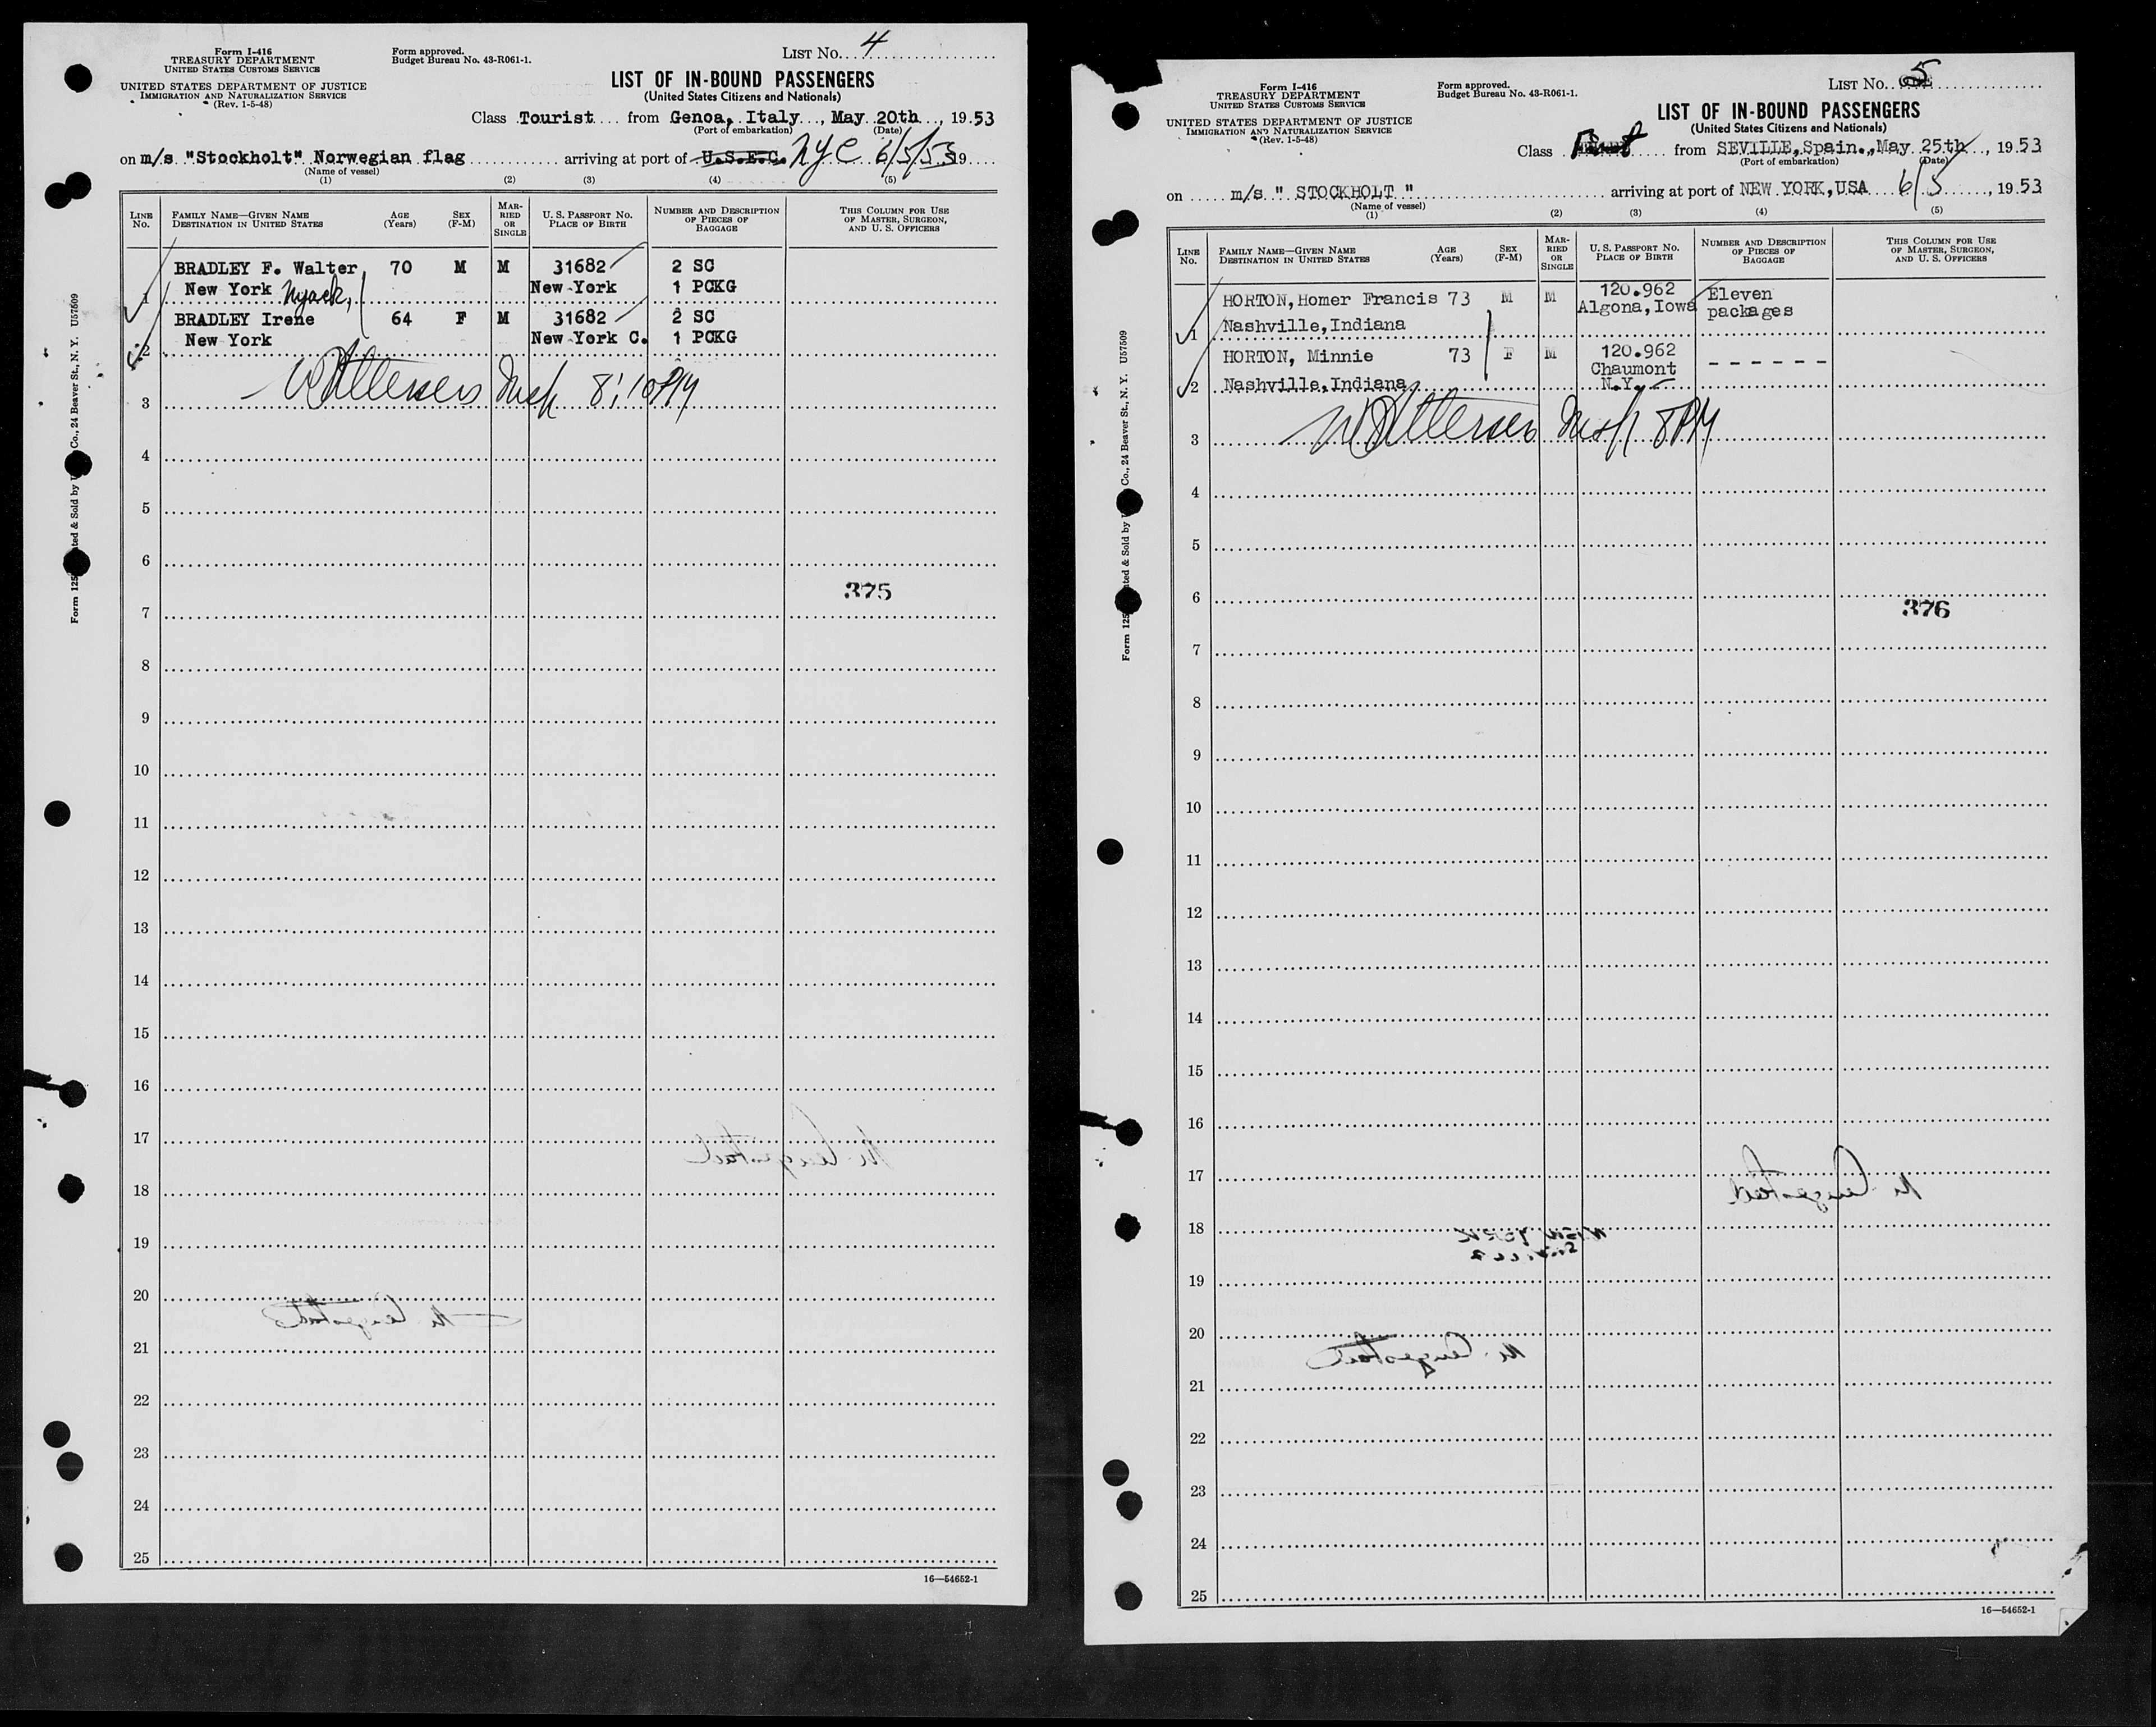 Form I-416
TREASURY DEPARTMENT
UNITED STATES CUSTOMS SERVICE
UNITED STATES DEPARTMENT OF JUSTICE
IMMIGRATION AND NATURALIZATION SERVICE
(Rev. 1-5-48)
Form approved.
Budget Bureau No. 43-R061-1.
LIST No. 4
LIST OF IN-BOUND PASSENGERS
(United States Citizens and Nationals)
Class Tourist from Genoa, Italy, May 20th, 1953
(Port of embarkation) (Date)
on m/s "Stockholt" Norwegian flag arriving at port of U.S.E.C. NYC 6/5/53 19
(Name of vessel)
(1) (2) (3) (4) (5)
LINE No. FAMILY NAME—GIVEN NAME DESTINATION IN UNITED STATES AGE (Years) SEX (F-M) MARRIED OR SINGLE U. S. PASSPORT No. PLACE OF BIRTH NUMBER AND DESCRIPTION OF PIECES OF BAGGAGE THIS COLUMN FOR USE OF MASTER, SURGEON, AND U. S. OFFICERS
BRADLEY F. Walter 70 M M 31682 2 SC
1 New York Nyack, New York 1 PCKG
BRADLEY Irene 64 F M 31682 2 SC
2 New York New York C. 1 PCKG
3 Insp 8:10PM
4
5
6
375
7
8
9
10
11
12
13
14
15
16
17
18
19
20
21
22
23
24
25
16—54652-1
Form 125 ted & Sold by Co., 24 Beaver St., N. Y. U57509
Form I-416
TREASURY DEPARTMENT
UNITED STATES CUSTOMS SERVICE
UNITED STATES DEPARTMENT OF JUSTICE
IMMIGRATION AND NATURALIZATION SERVICE
(Rev. 1-5-48)
Form approved.
Budget Bureau No. 43-R061-1.
LIST No. 5
LIST OF IN-BOUND PASSENGERS
(United States Citizens and Nationals)
Class First from SEVILLE, Spain., May 25th, 1953
(Port of embarkation) (Date)
on m/s " STOCKHOLT " arriving at port of NEW YORK, USA 6/5, 1953
(Name of vessel)
(1) (2) (3) (4) (5)
LINE No. FAMILY NAME—GIVEN NAME DESTINATION IN UNITED STATES AGE (Years) SEX (F-M) MARRIED OR SINGLE U. S. PASSPORT No. PLACE OF BIRTH NUMBER AND DESCRIPTION OF PIECES OF BAGGAGE THIS COLUMN FOR USE OF MASTER, SURGEON, AND U. S. OFFICERS
HORTON, Homer Francis 73 M M 120.962 Eleven
Algona, Iowa packages
1 Nashville, Indiana
HORTON, Minnie 73 F M 120.962 - - - - - -
Chaumont
2 Nashville, Indiana N.Y.
3 Insp 8PM
4
5
6
376
7
8
9
10
11
12
13
14
15
16
17
18
19
20
21
22
23
24
25
16—54652-1
Form 125 ted & Sold by Co., 24 Beaver St., N. Y. U57509